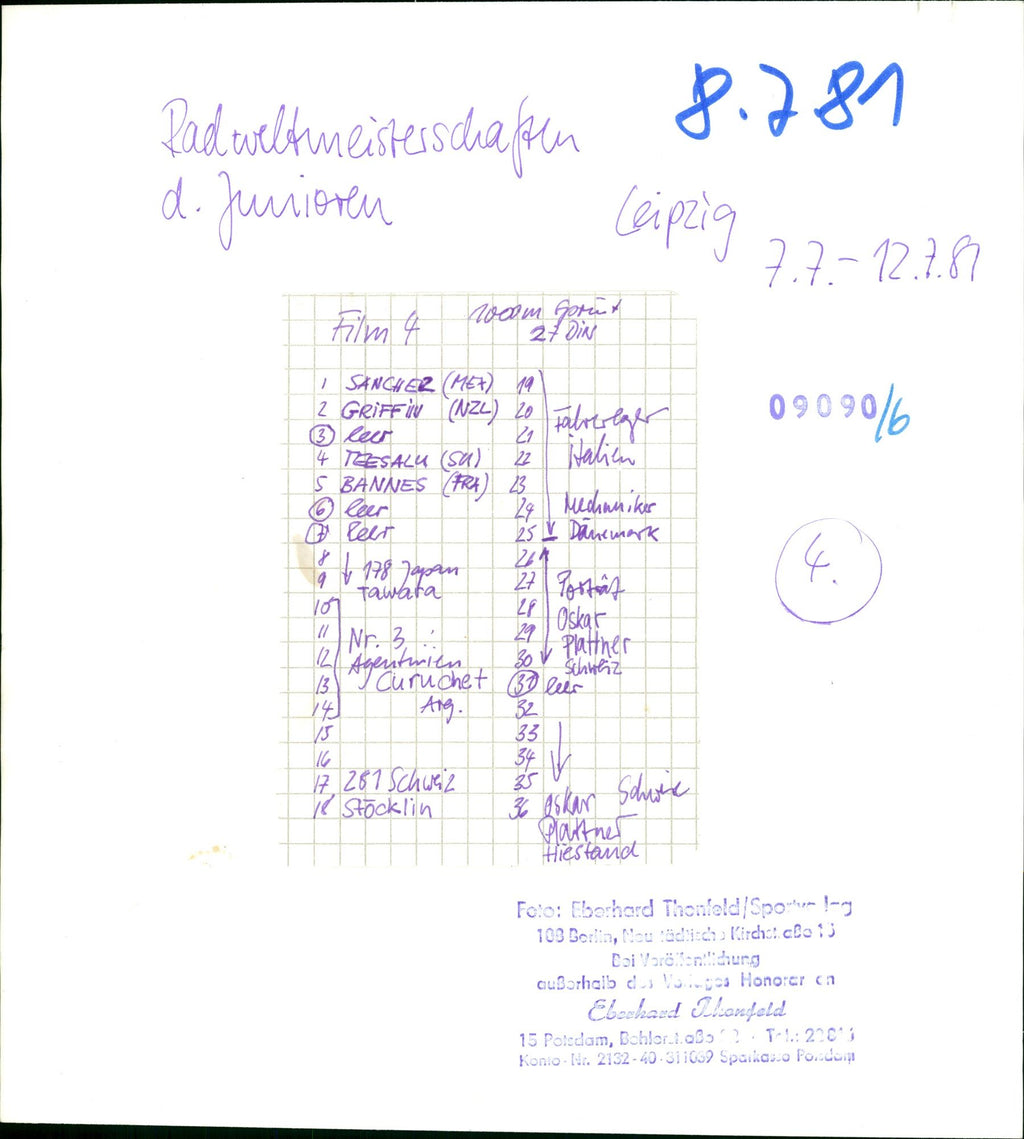 8.7.81
Radweltmeisterschaften
d. Junioren
Leipzig
7.7. - 12.7.81
Film 4
1000m Sprint
27 DIN
1 SANCHEZ (MEX)
2 GRIFFIN (NZL)
3 leer
4 TEESALU (SU)
5 BANNES (FRA)
6 leer
7 leer
8 178 Japan
9 Tawara
10
11 Nr. 3
12 Agentinien
13 Curuchet
14 Arg.
15
16
17 281 Schweiz
18 Stöcklin
19
20 Fahrerlager
21
22 Italien
23
24 Mechaniker
25 Dänemark
26
27 Porträt
28 Oskar
29 Plattner
30 Schweiz
31 leer
32
33
34
35 Schweiz
36 Oskar
Plattner
Hiestand
09090/6
4.
Foto: Eberhard Thonfeld/
108 Berlin, Kirchstraße 15
Bei Veröffentlichung
außerhalb des Verlages Honorar an
Eberhard Thonfeld
15 Potsdam, Tel.:
Konto-Nr. 2132-40-311069 Sparkasse Potsdam